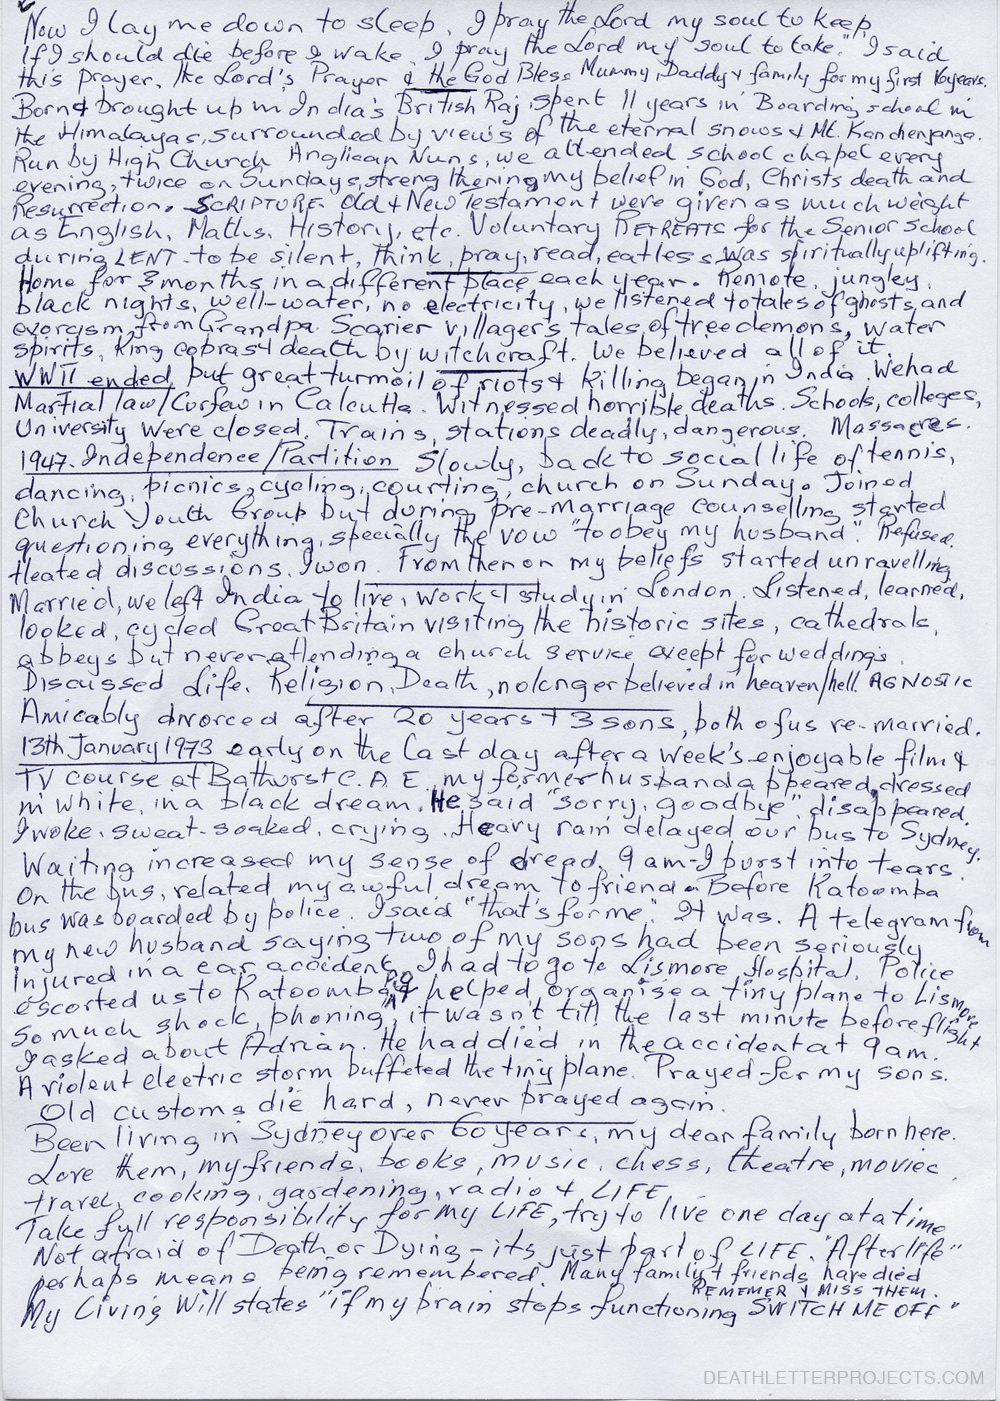 Now I lay me down to sleep, I pray the Lord my soul to keep,
If I should die before I wake, I pray the Lord my soul to take." I said
this prayer, the Lord's Prayer & the God Bless Mummy, Daddy & family for my first 16 years.
Born & brought up in India's British Raj, spent 11 years in Boarding school in
the Himalayas, surrounded by views of the eternal snows & Mt. Kanchenjanga.
Run by High Church Anglican Nuns, we attended school chapel every
evening, twice on Sundays, strengthening my belief in God, Christs death and
Resurrection. SCRIPTURE Old & New Testament were given as much weight
as English, Maths, History, etc. Voluntary RETREATS for the Senior School
during LENT - to be silent, think, pray, read, eat less was spiritually uplifting.
Home for 3 months in a different place each year. Remote, jungley,
black nights, well-water, no electricity, we listened to tales of ghosts and
exorcism from Grandpa. Scarier villager's tales of tree demons, water
spirits, King cobras & death by witchcraft. We believed all of it.
WWII ended but great turmoil of riots & killing began in India. We had
Martial law/Curfew in Calcutta. Witnessed horrible deaths. Schools, colleges,
University were closed. Trains, stations deadly, dangerous. Massacres.
1947. Independence/Partition Slowly, back to social life of tennis,
dancing, picnics, cycling, courting, church on Sunday. Joined
Church Youth Group but during pre-marriage counselling started
questioning everything, specially the vow "to obey my husband". Refused.
Heated discussions. I won. From then on my beliefs started unravelling
Married, we left India to live, work & study in London. Listened, learned,
looked, cycled Great Britain visiting the historic sites, cathedrals,
abbeys but never attending a church service except for weddings.
Discussed Life, Religion, Death, no longer believed in heaven/hell. AGNOSTIC
Amicably divorced after 20 years + 3 sons, both of us re-married.
13th January 1973 early on the last day after a week's enjoyable film &
TV course at Bathurst C.A.E. my former husband appeared, dressed
in white, in a black dream. He said "sorry, goodbye", disappeared.
I woke, sweat-soaked, crying. Heavy rain delayed our bus to Sydney.
Waiting increased my sense of dread, 9am - I burst into tears.
On the bus, related my awful dream to friend. Before Katoomba
bus was boarded by police. I said "that's for me." It was. A telegram from
my new husband saying two of my sons had been seriously
injured in a car accident, I had to go to Lismore Hospital. Police
escorted us to Katoomba & helped organise a tiny plane to Lismore
So much shock, phoning, it wasn't till the last minute before flight
I asked about Adrian. He had died in the accident at 9am.
A violent electric storm buffeted the tiny plane. Prayed for my sons.
Old customs die hard, never prayed again.
Been living in Sydney over 60 years, my dear family born here.
Love them, my friends, books, music, chess, theatre, movies
travel, cooking, gardening, radio & LIFE
Take full responsibility for my LIFE, try to live one day at a time
Not afraid of Death or Dying - it's just part of LIFE. "Afterlife"
perhaps means being remembered. Many family & friends have died
REMEMER & MISS THEM.
My Living Will states "if my brain stops functioning SWITCH ME OFF"
DEATHLETTERPROJECTS.COM